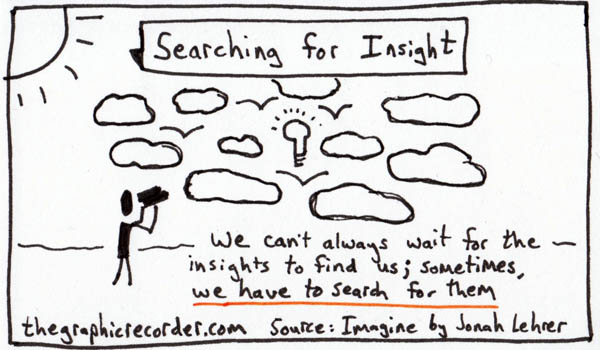 Searching for Insight
We can't always wait for the
insights to find us; sometimes,
we have to search for them
thegraphicrecorder.com Source: Imagine by Jonah Lehrer